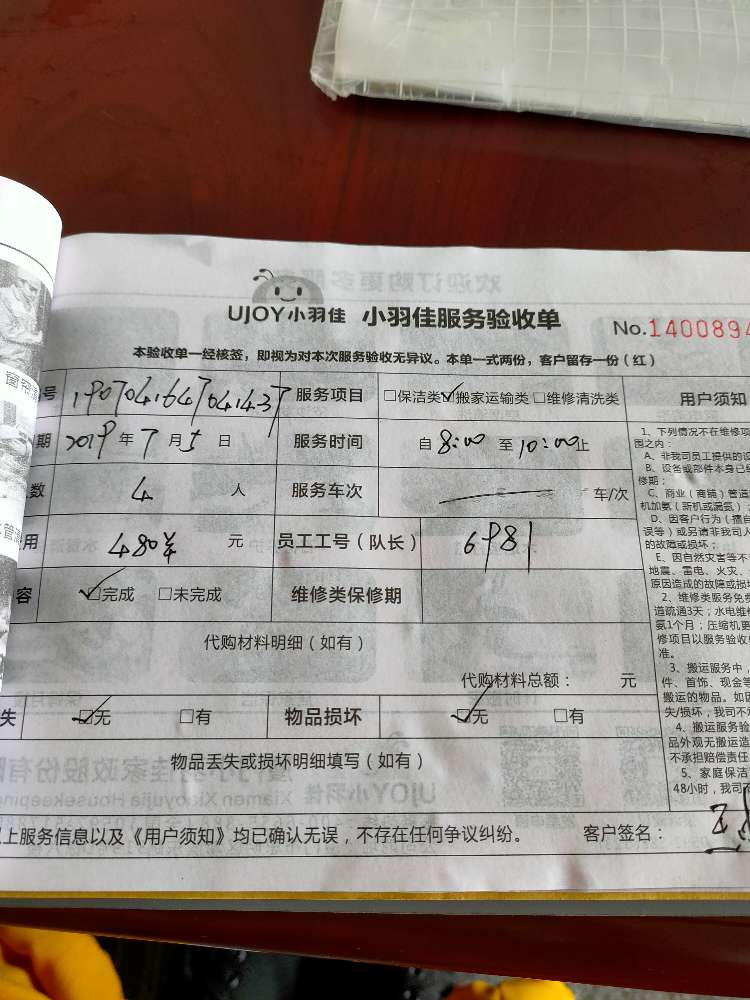 UJOY小羽佳 小羽佳服务验收单 No.1400894
本验收单一经核签，即视为对本次服务验收无异议。本单一式两份，客户留存一份（红）
号 1907041647041437 服务项目 □保洁类☑搬家运输类 □维修清洗类 用户须知
期 2019年7月5日 服务时间 自8:00至10:00止
数 4 人 服务车次 车/次
用 480 元 员工工号（队长） 6981
容 ☑完成 □未完成 维修类保修期
代购材料明细（如有）
代购材料总额： 元
失 ☑无 □有 物品损坏 ☑无 □有
物品丢失或损坏明细填写（如有）
上服务信息以及《用户须知》均已确认无误，不存在任何争议纠纷。 客户签名：
1、下列情况不在维修项
围之内：
A、非我司员工提供的设
B、设备或部件本身已
修期；
C、商业（商铺）管道
机加氨（新机或漏氨）；
D、因客户行为（擅自
误等）或另请非我司人
的故障或损坏；
E、因自然灾害等不
地震、雷电、火灾、
原因造成的故障或损
2、维修类服务免费
道疏通3天；水电维修
氨1个月；压缩机更
修项目以服务验收
准。
3、搬运服务中，
件、首饰、现金等
搬运的物品。如因
失/损坏，我司不
4、搬运服务验
品外观无搬运造
不承担赔偿责任
5、家庭保洁
48小时，我司